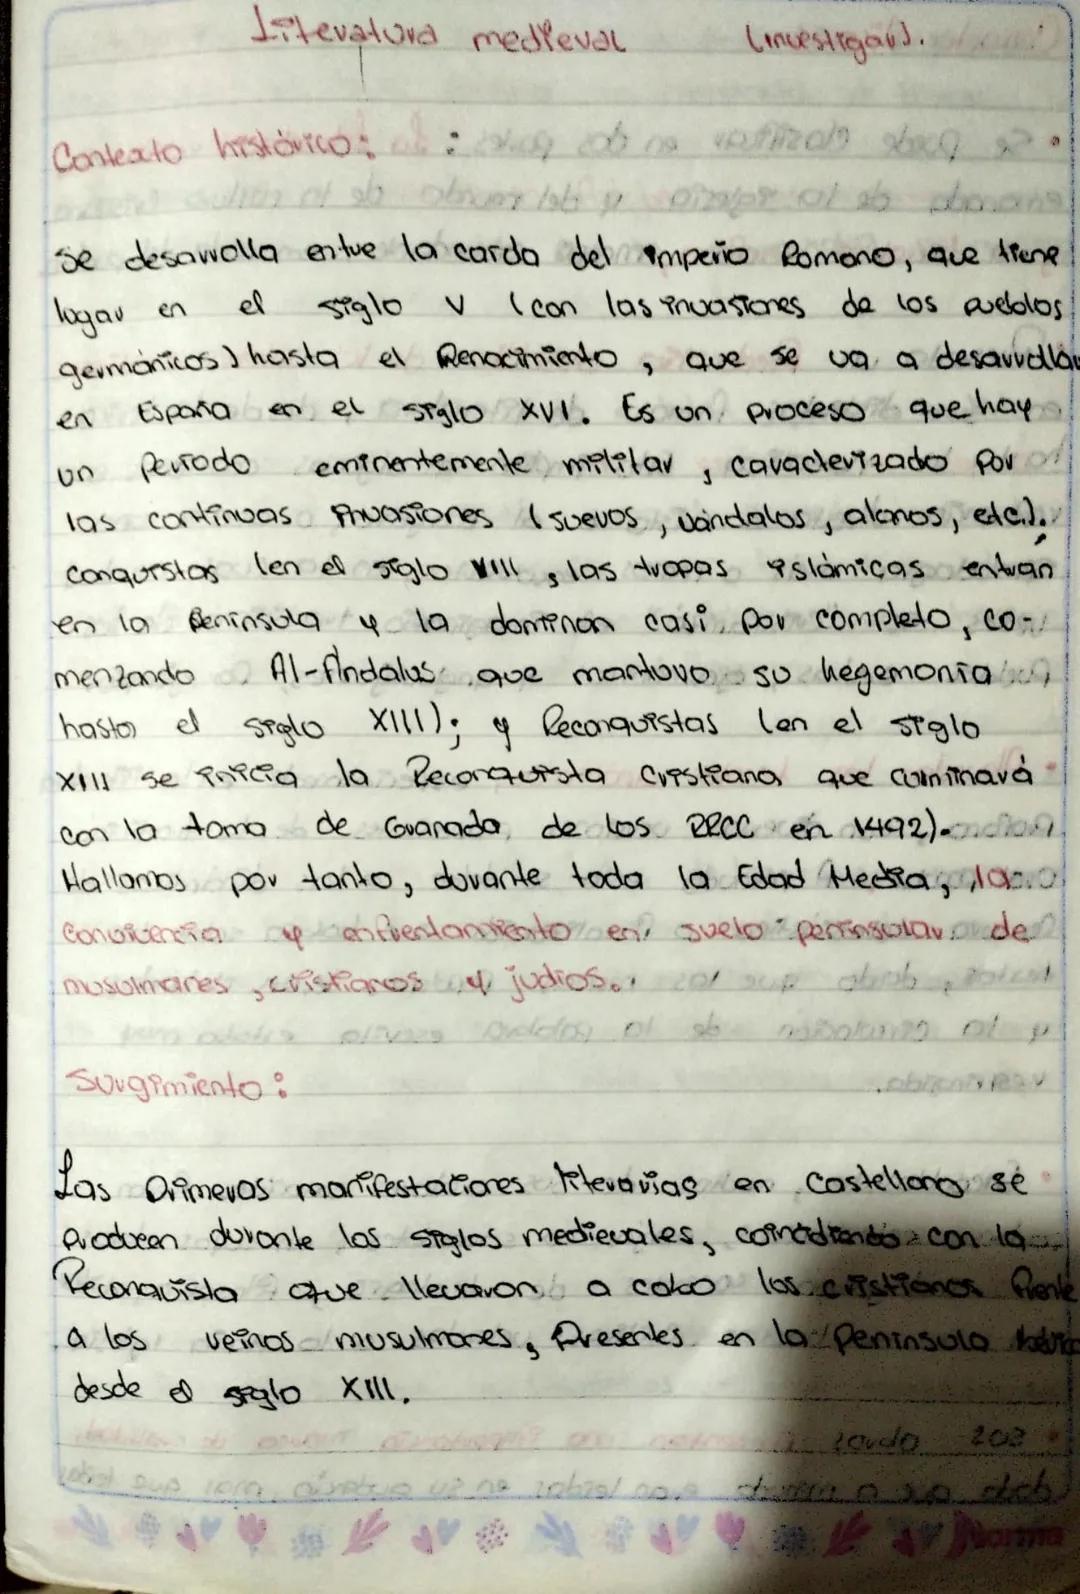 Literatura medieval (investigar).
Contexto histórico:
se desarrolla entre la caida del imperio Romano, que tiene
lugar en el siglo V (con las invasiones de los pueblos
germánicos) hasta el Renacimiento, que se va a desarrollar
en España en el siglo XVI. Es un proceso que hay
un periodo eminentemente militar, caracterizado por
las continuas invasiones (suevos, vándalos, alanos, etc.).
conquistas (en el siglo VIII, las tropas islámicas entran
en la Península y la dominan casi por completo, co-
menzando Al-Ándalus que mantuvo su hegemonia
hasta el siglo XIII); y Reconquistas (en el siglo
XIII se inicia la Reconquista Cristiana que culminará
con la toma de Granada de los RRCC en 1492).
Hallamos por tanto, durante toda la Edad Media, la
convivencia y enfrentamiento en suelo peninsular de
musulmanes, cristianos y judios.
Surgimiento:
Las primeras manifestaciones literarias en castellano se
producen durante los siglos medievales, coincidiendo con la
Reconquista que llevaron a cabo los cristianos frente
a los reinos musulmanes, Presentes en la Península Ibérica
desde el siglo XIII.
Norma